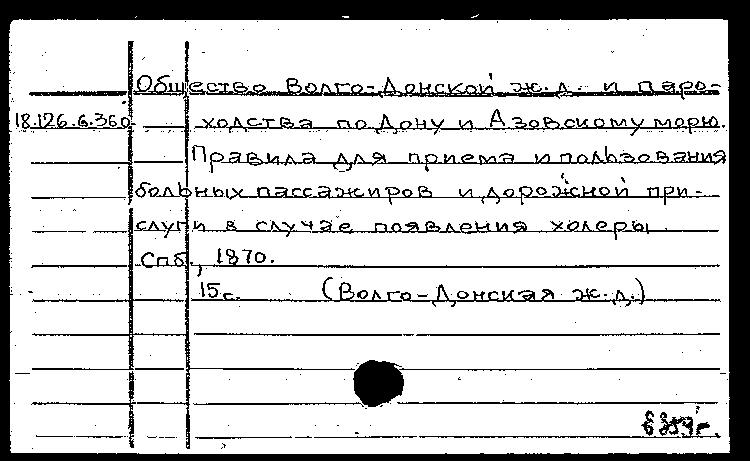 Общество Волго-Донской ж.д. и паро-
18.126.6.360 ходства по Дону и Азовскому морю.
Правила для приема и пользования
больных пассажиров и дорожной при-
слуги в случае появления холеры
Спб., 1870.
15с. (Волго-Донская ж.д.)